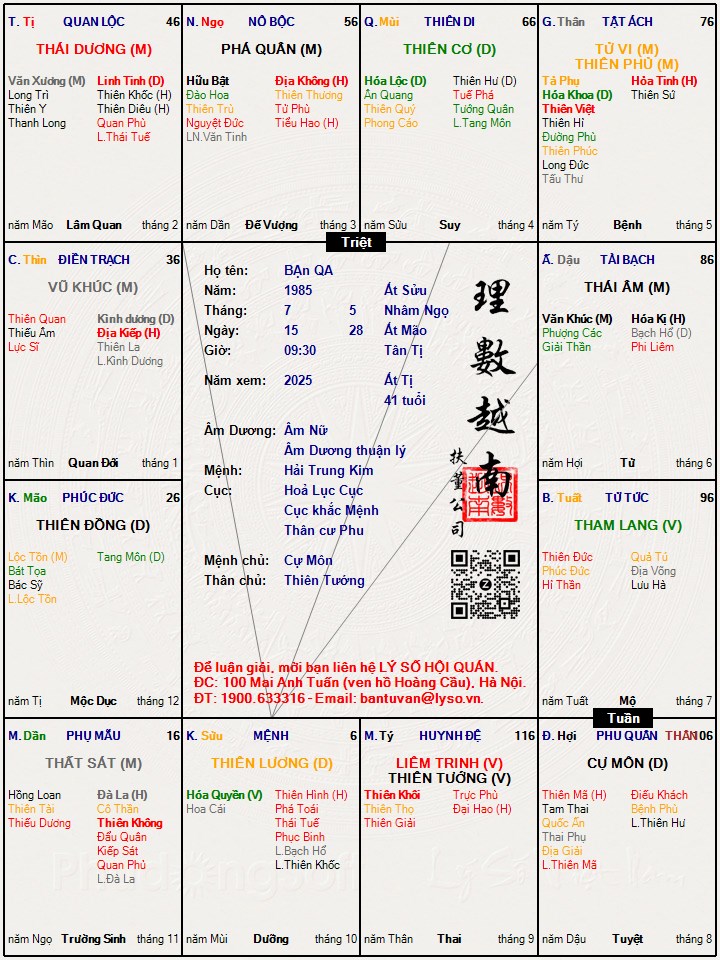 T. Tị QUAN LỘC 46
THÁI DƯƠNG (M)
Văn Xương (M) Linh Tinh (D)
Long Trì Thiên Khốc (H)
Thiên Y Thiên Diêu (H)
Thanh Long Quan Phù
L.Thái Tuế
năm Mão Lâm Quan tháng 2
N. Ngọ NÔ BỘC 56
PHÁ QUÂN (M)
Hữu Bật Địa Không (H)
Đào Hoa Thiên Thương
Thiên Trù Tử Phù
Nguyệt Đức Tiểu Hao (H)
LN.Văn Tinh
năm Dần Đế Vượng tháng 3
Q. Mùi THIÊN DI 66
THIÊN CƠ (D)
Hóa Lộc (D) Thiên Hư (D)
Ân Quang Tuế Phá
Thiên Quý Tướng Quân
Phong Cáo L.Tang Môn
năm Sửu Suy tháng 4
G. Thân TẬT ÁCH 76
TỬ VI (M)
THIÊN PHỦ (M)
Tả Phụ Hỏa Tinh (H)
Hóa Khoa (D) Thiên Sứ
Thiên Việt
Thiên Hỉ
Đường Phù
Thiên Phúc
Long Đức
Tấu Thư
năm Tý Bệnh tháng 5
Triệt
C. Thìn ĐIỀN TRẠCH 36
VŨ KHÚC (M)
Thiên Quan Kình dương (D)
Thiếu Âm Địa Kiếp (H)
Lực Sĩ Thiên La
L.Kình Dương
năm Thìn Quan Đới tháng 1
Họ tên: BẠn QA
Năm: 1985 Ất Sửu
Tháng: 7 5 Nhâm Ngọ
Ngày: 15 28 Ất Mão
Giờ: 09:30 Tân Tị
Năm xem: 2025 Ất Tị
41 tuổi
Âm Dương: Âm Nữ
Âm Dương thuận lý
Mệnh: Hải Trung Kim
Cục: Hoả Lục Cục
Cục khắc Mệnh
Thân cư Phu
Mệnh chủ: Cự Môn
Thân chủ: Thiên Tướng
理數越南
扶董公司
Để luận giải, mời bạn liên hệ LÝ SỐ HỘI QUÁN.
ĐC: 100 Mai Anh Tuấn (ven hồ Hoàng Cầu), Hà Nội.
ĐT: 1900.633316 - Email: bantuvan@lyso.vn.
Ấ. Dậu TÀI BẠCH 86
THÁI ÂM (M)
Văn Khúc (M) Hóa Kị (H)
Phượng Các Bạch Hổ (D)
Giải Thần Phi Liêm
năm Hợi Tử tháng 6
K. Mão PHÚC ĐỨC 26
THIÊN ĐỒNG (D)
Lộc Tồn (M) Tang Môn (D)
Bát Tọa
Bác Sỹ
L.Lộc Tồn
năm Tị Mộc Dục tháng 12
B. Tuất TỬ TỨC 96
THAM LANG (V)
Thiên Đức Quả Tú
Phúc Đức Địa Võng
Hỉ Thần Lưu Hà
năm Tuất Mộ tháng 7
Tuần
M. Dần PHỤ MẪU 16
THẤT SÁT (M)
Hồng Loan Đà La (H)
Thiên Tài Cô Thần
Thiếu Dương Thiên Không
Đẩu Quân
Kiếp Sát
Quan Phủ
L.Đà La
năm Ngọ Trường Sinh tháng 11
K. Sửu MỆNH 6
THIÊN LƯƠNG (D)
Hóa Quyền (V) Thiên Hình (H)
Hoa Cái Phá Toái
Thái Tuế
Phục Binh
L.Bạch Hổ
L.Thiên Khốc
năm Mùi Dưỡng tháng 10
M. Tý HUYNH ĐỆ 116
LIÊM TRINH (V)
THIÊN TƯỚNG (V)
Thiên Khôi Trực Phù
Thiên Thọ Đại Hao (H)
Thiên Giải
năm Thân Thai tháng 9
Đ. Hợi PHU QUÂN THÂN 106
CỰ MÔN (D)
Thiên Mã (H) Điếu Khách
Tam Thai Bệnh Phù
Quốc Ấn L.Thiên Hư
Thai Phụ
Địa Giải
L.Thiên Mã
năm Dậu Tuyệt tháng 8